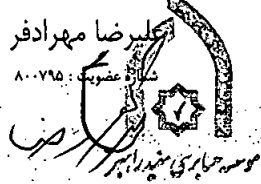 علیرضا مهرادفر
شماره عضویت : ۸۰۰۷۹۵
موسسه حسابرسی مفید راهبر